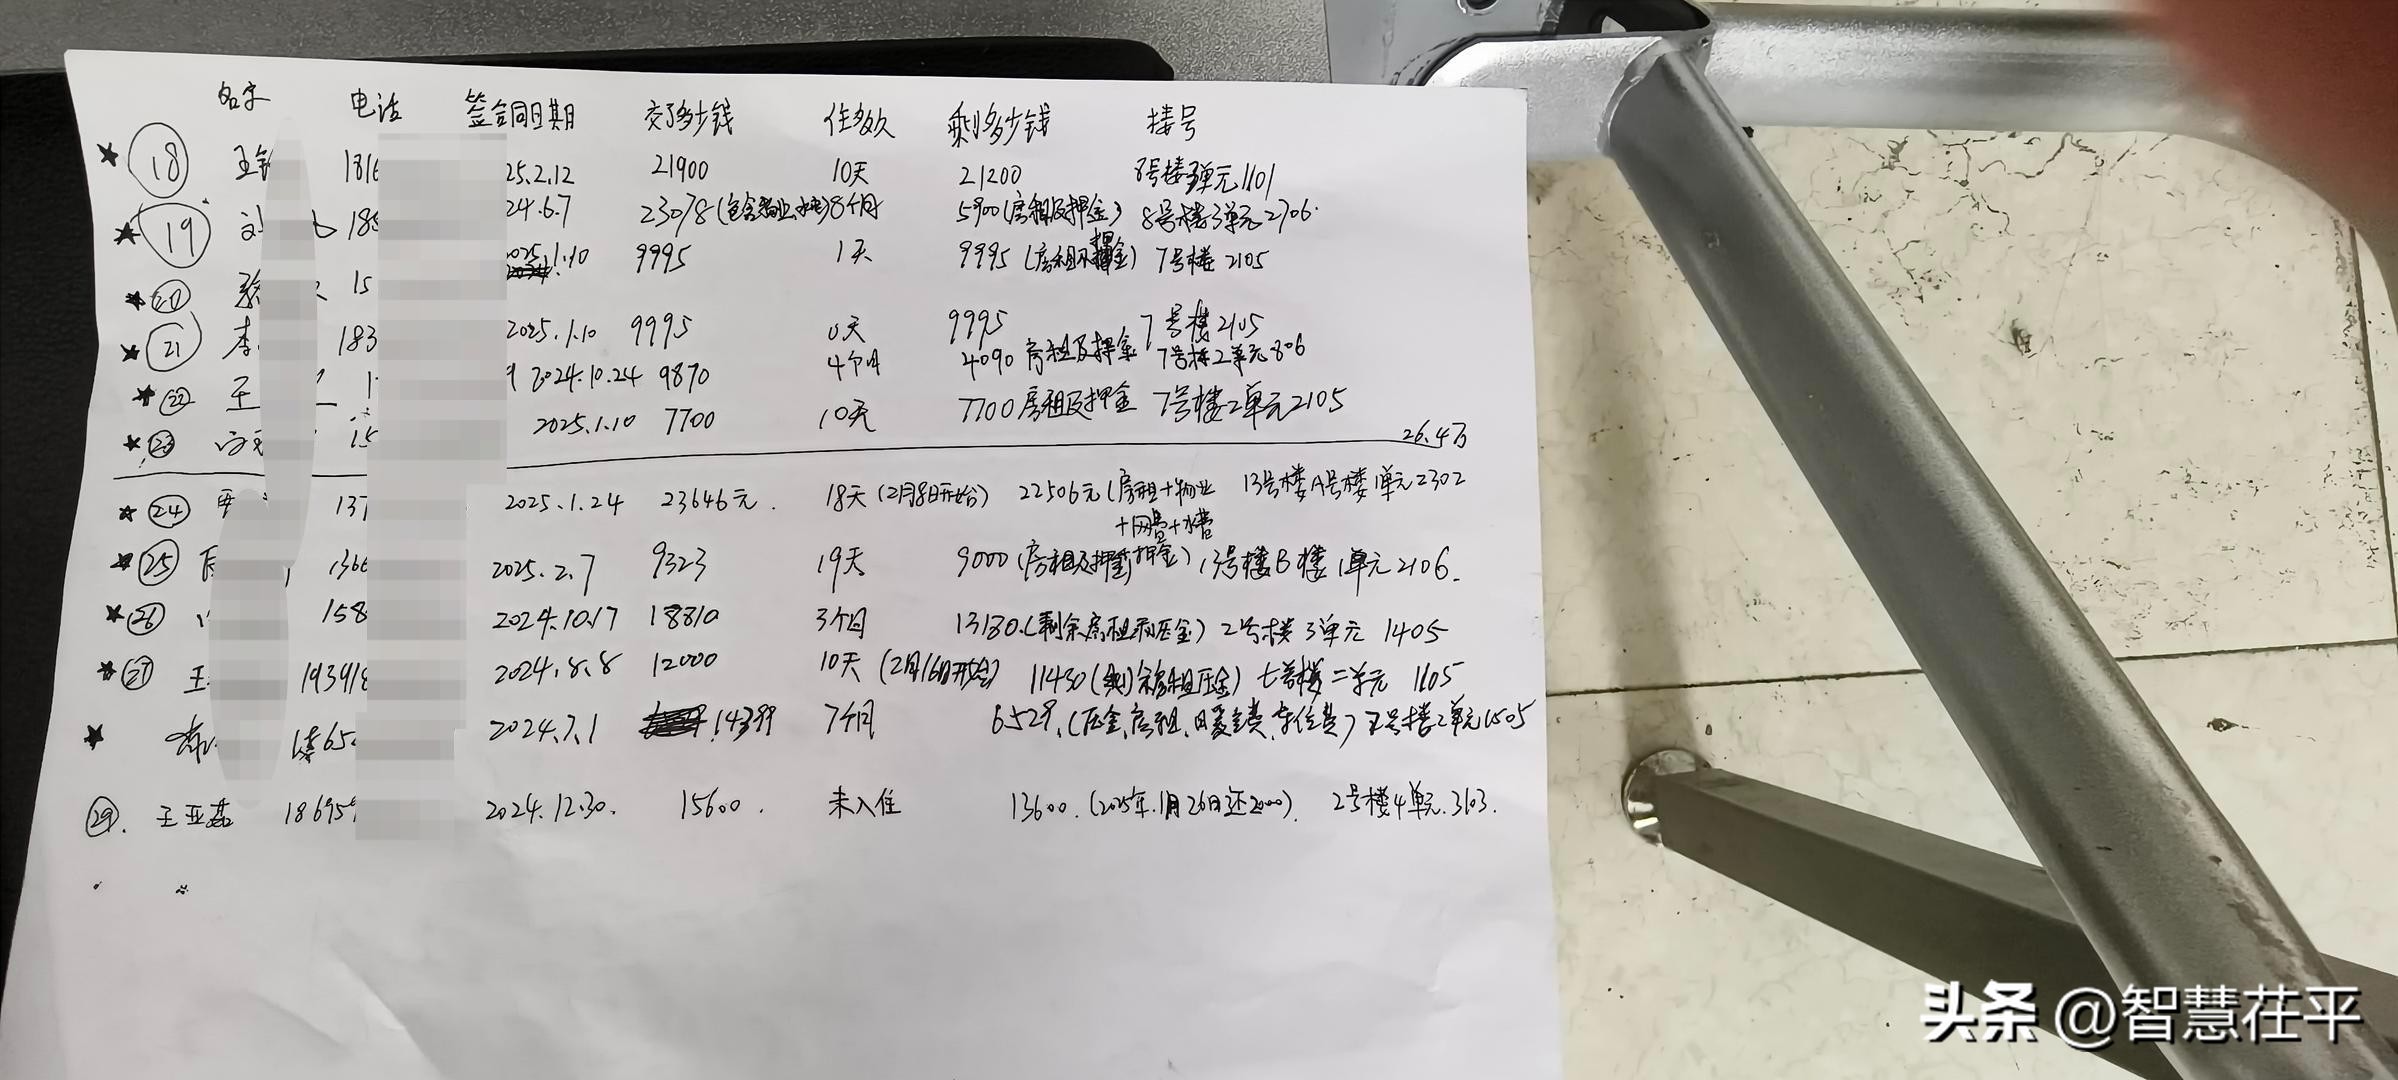 名字 电话 签合同日期 交了多少钱 住多久 剩多少钱 楼号
★ 18 王 181 25.2.12 21900 10天 21200 8号楼3单元1101
★ 19 刘 185 24.6.7 23078(包含物业、水电) 8个月 5900(房租及押金) 8号楼3单元2706.
★ 20 15 2025.1.10 9995 1天 9995(房租及押金) 7号楼 2105
★ 21 李 183 2025.1.10 9995 0天 9995 7号楼2105
★ 22 王 1 2024.10.24 9870 4个月 4090 房租及押金 7号楼2单元806
★ 23 15 2025.1.10 7700 10天 7700房租及押金 7号楼2单元2105
26.4万
★ 24 137 2025.1.24 23646元. 18天(2月8日开始) 22506元(房租+物业 13号楼A号楼1单元2302
+网费+水费
★ 25 136 2025.2.7 9323 19天 9000(房租及押金) 13号楼B楼1单元2106.
★ 26 158 2024.10.17 18810 3个月 13180.(剩余房租和压金) 2号楼3单元 1405
★ 27 王 193918 2024.8.8 12000 10天(2月16日开始) 11430(剩余房租压金) 七号楼二单元 1105
★ 2024.7.1 14399 7个月 6529.(压金、房租、暖费、车位费) 2单元1505
29. 王亚 186959 2024.12.30. 15600. 未入住 13600.(2025年.1月26日还2000). 2号楼4单元.3103.
头条 @智慧茌平